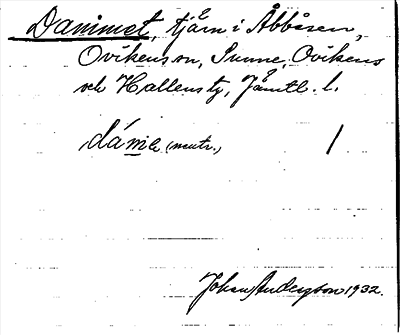 Dammet, tjärn i Åbbåsen,
Ovikens sn, Sunne, Ovikens
och Hallens tg, Jämtl. l.
dámme (neutr.) /
Johan Anderzon 1932.